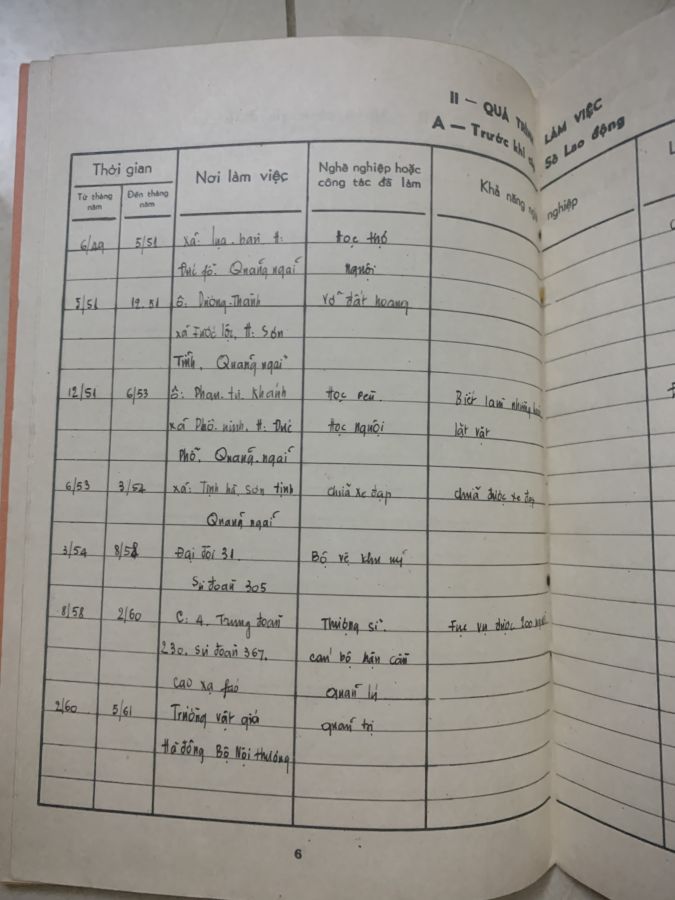 II — QUÁ TRÌNH LÀM VIỆC
A — Trước khi Sổ Lao động
Thời gian
Nơi làm việc
Nghề nghiệp hoặc công tác đã làm
Khả năng nghề nghiệp
Từ tháng năm
Đến tháng năm
6/49 5/51 xã: han H: Học thợ
Đức fổ. Quảng ngãi nguội
5/51 12.51 ô: Dương-Thành vỡ đất hoang
xã Fước lộc, H: Sơn
Tĩnh, Quảng ngãi
12/51 6/53 ô: Phan. tử Khanh Học rèn. Biết làm những
xã Phổ. ninh. H: Đức Học nguội lặt vặt
Phổ, Quảng. ngãi
6/53 3/54 xã: Tịnh hà, sơn tịnh chữa xe đạp chữa được xe đạp
Quảng ngãi
3/54 8/58 Đại đội 31 Bộ vệ khu uỷ
Sư đoàn 305
8/58 2/60 C: 4. Trung đoàn Thượng sĩ. Fục vụ được 200 người
230. sư đoàn 367. cán bộ hậu cần
cao xạ fáo quản lý
2/60 5/61 Trường vật giá quản trị
Hà đông Bộ Nội thương
6